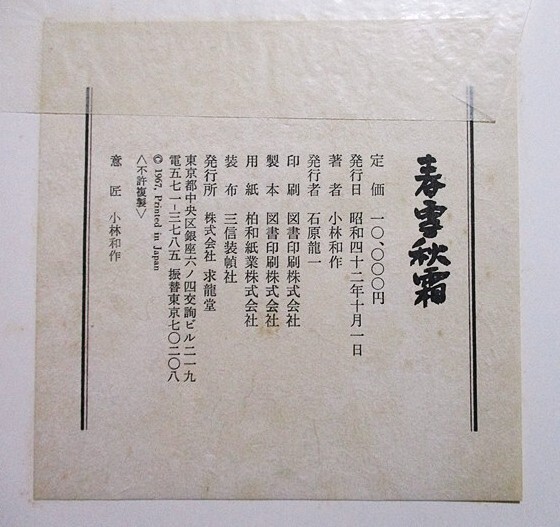 春雪秋霜
定価 一〇、〇〇〇円
発行日 昭和四十二年十月一日
著者 小林和作
発行者 石原龍一
印刷 図書印刷株式会社
製本 図書印刷株式会社
用紙 柏和紙業株式会社
装布 三信装幀社
発行所 株式会社 求龍堂
東京都中央区銀座六ノ四交詢ビル二一九
電五七一―三七八五 振替東京七〇二〇八
© 1967, Printed in Japan
〈不許複製〉
意匠 小林和作